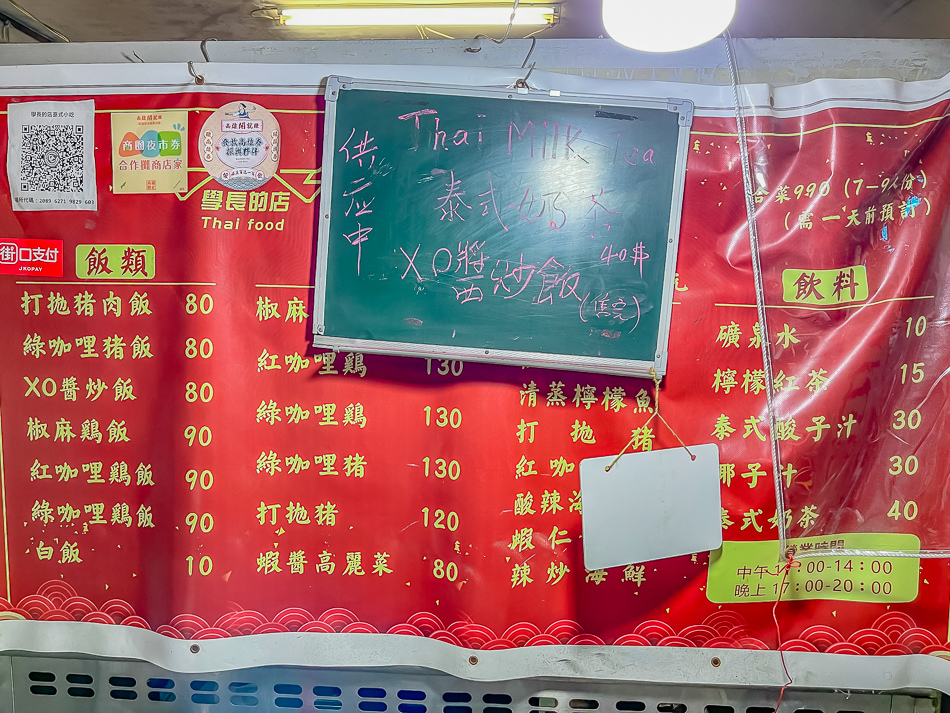 學長的店意式小吃
商圈夜市券
合作攤商店家
學長的店
Thai food
街口支付
JKOPAY
供应中
Thai Milk Tea
泰式奶茶
40
XO醬炒飯
合菜990(7-9人份)
(需一天前預訂)
飯類
打拋豬肉飯 80
綠咖哩豬飯 80
XO醬炒飯 80
椒麻鷄飯 90
紅咖哩鷄飯 90
綠咖哩鷄飯 90
白飯 10
椒麻
紅咖哩鷄 130
綠咖哩鷄 130
綠咖哩豬 130
打拋豬 120
蝦醬高麗菜 80
清蒸檸檬魚
打拋豬
紅咖
酸辣海
蝦仁
辣炒海鮮
飲料
礦泉水 10
檸檬紅茶 15
泰式酸子汁 30
椰子汁 30
泰式奶茶 40
營業時間
中午11:00-14:00
晚上17:00-20:00